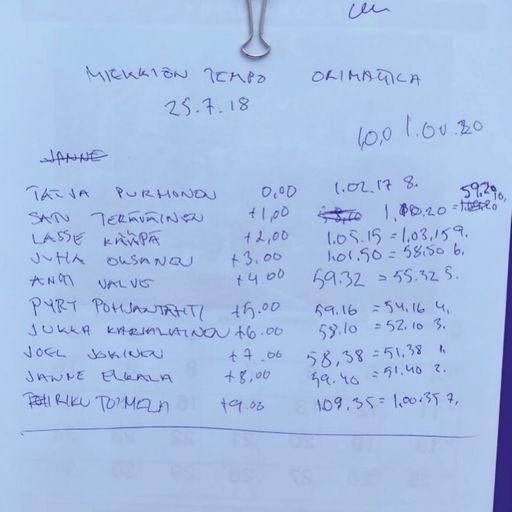 MIEHIKKÄLÄN TEMPO ORIMATTILA
25.7.18
10,0 1.00.20
JANNE
TARJA PURMONEN 0,00 1.02.17 8.
SATU TERÄVÄINEN +1,00 1,00.20 = 59.20 10.
LASSE KÄÄPÄ +2,00 1.05.15 = 1,03,15 9.
JUHA OKSANEN +3.00 101,50 = 58,50 6.
ANTI VALVE +4.00 59.32 = 55.32 5.
PYRY POHJANTÄHTI +5.00 59.16 = 54.16 4.
JUKKA KARJALAINEN +6.00 58.10 = 52.10 3.
JOEL JOKINEN +7.00 58,38 = 51,38 1.
JANNE ELKALA +8,00 59.40 = 51,40 2.
RIKU TOIMELA +9.00 109,35 = 1,00.35 7.